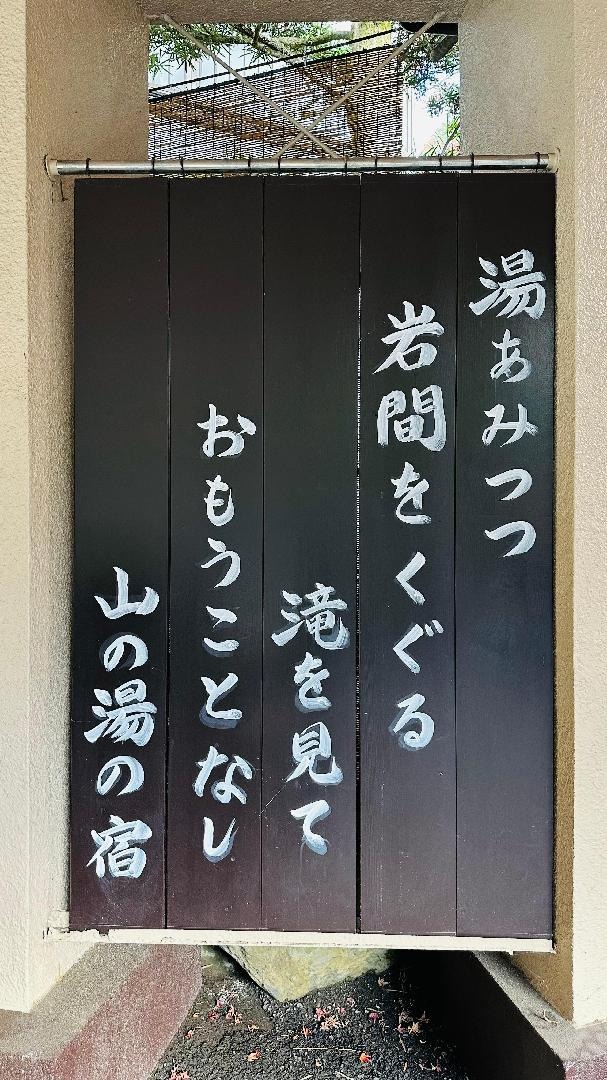 湯あみつつ
岩間をくぐる
滝を見て
おもうことなし
山の湯の宿